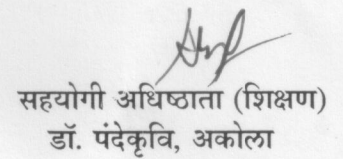 सहयोगी अधिष्ठाता (शिक्षण)
डॉ. पंदेकृवि, अकोला